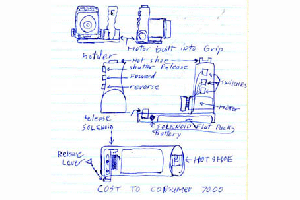 Motor built into Grip
holder
Hot shoe
shutter release
forward
reverse
switches
motor
release
SOLENOID
Flat Pack
battery
Release
Lever
HOT SHOE
COST TO CONSUMER 7000